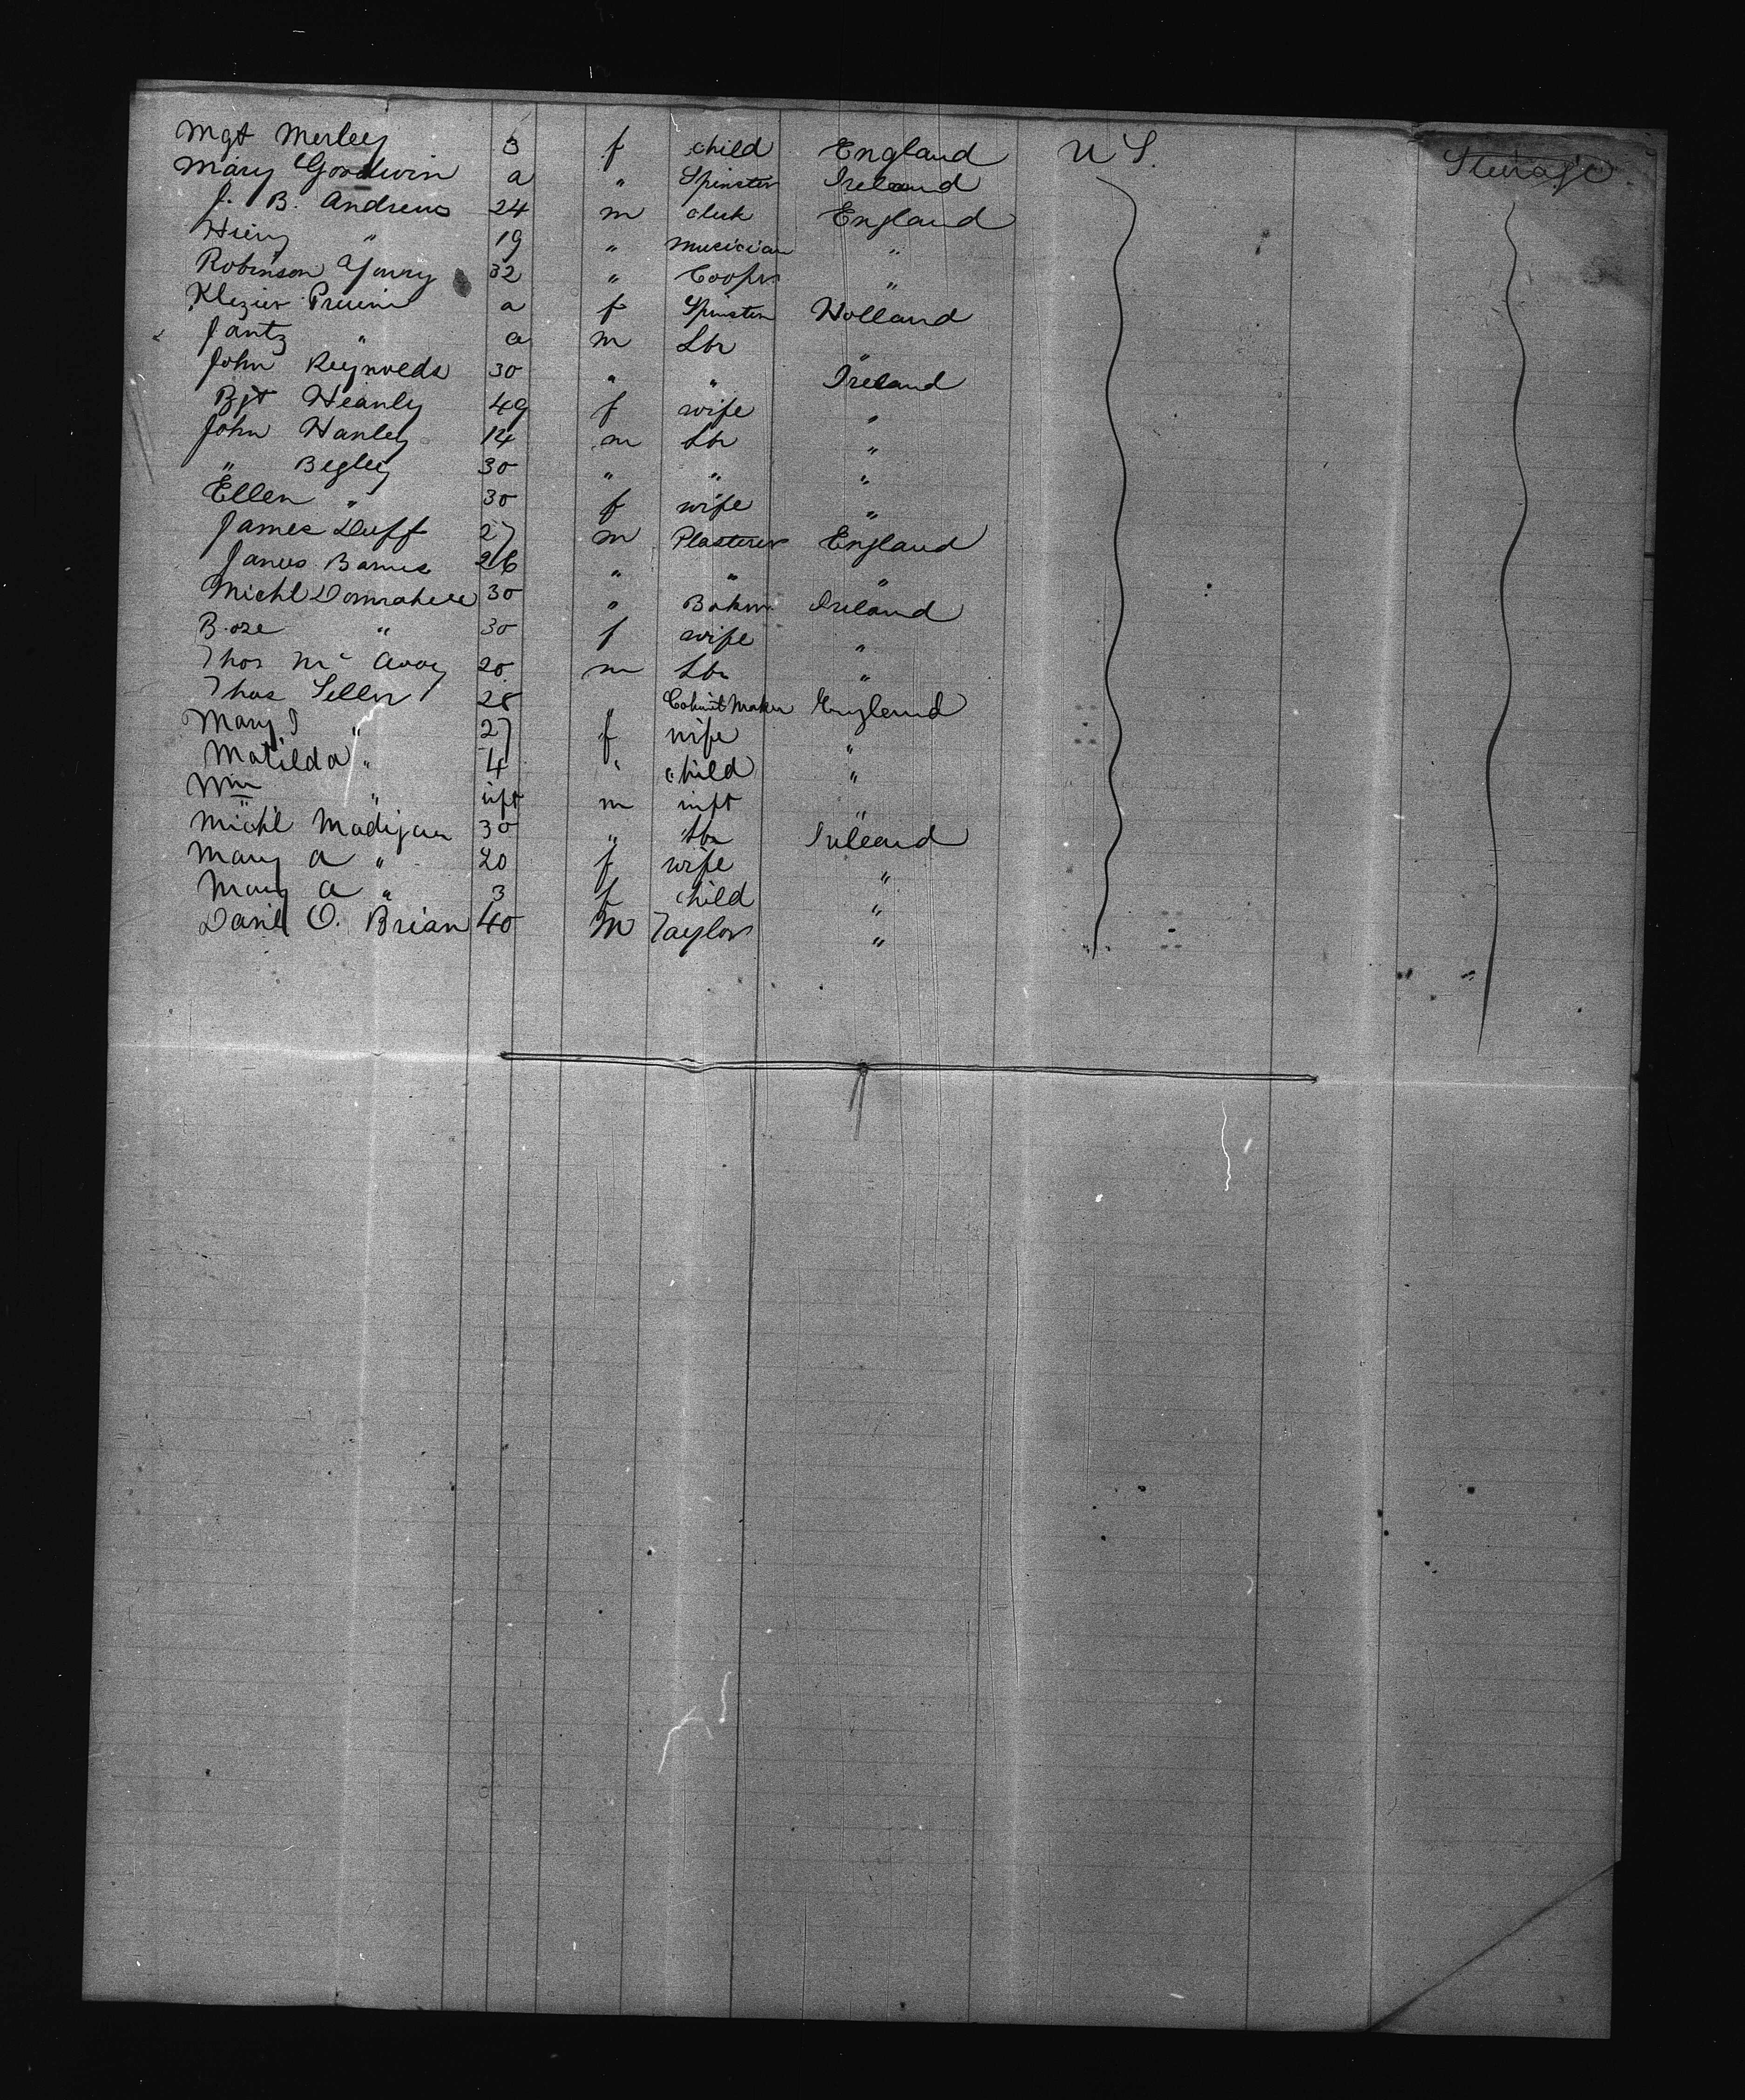 Mgt Merley 3 f child England U S. Steurage
Mary Goodwin a " Spinster Ireland
J. B. Andrews 24 m clerk England
Henry " 19 " Musician "
Robinson Young 32 " Cooper "
a f Spinster Holland
Jantz " a m Lbr "
John Reynolds 30 " " Ireland
Bgt Heanly 49 f wife "
John Hanley 14 m Lbr "
" Begley 30 " " "
Ellen " 30 f wife "
James Duff 27 m Plasterer England
James Barnes 26 " " "
Michl 30 " Baker Ireland
" 30 f wife "
Thos Mc Avoy 20 m Lbr "
Thos Seller 28 " Cabinet Maker England
Mary J " 27 f wife "
Matilda " 4 " child "
Wm " inft m inft "
Michl Madigan 30 " Lbr Ireland
Mary A " 20 f wife "
Mary A " 3 f child "
Danl O. Brian 40 M Taylor "